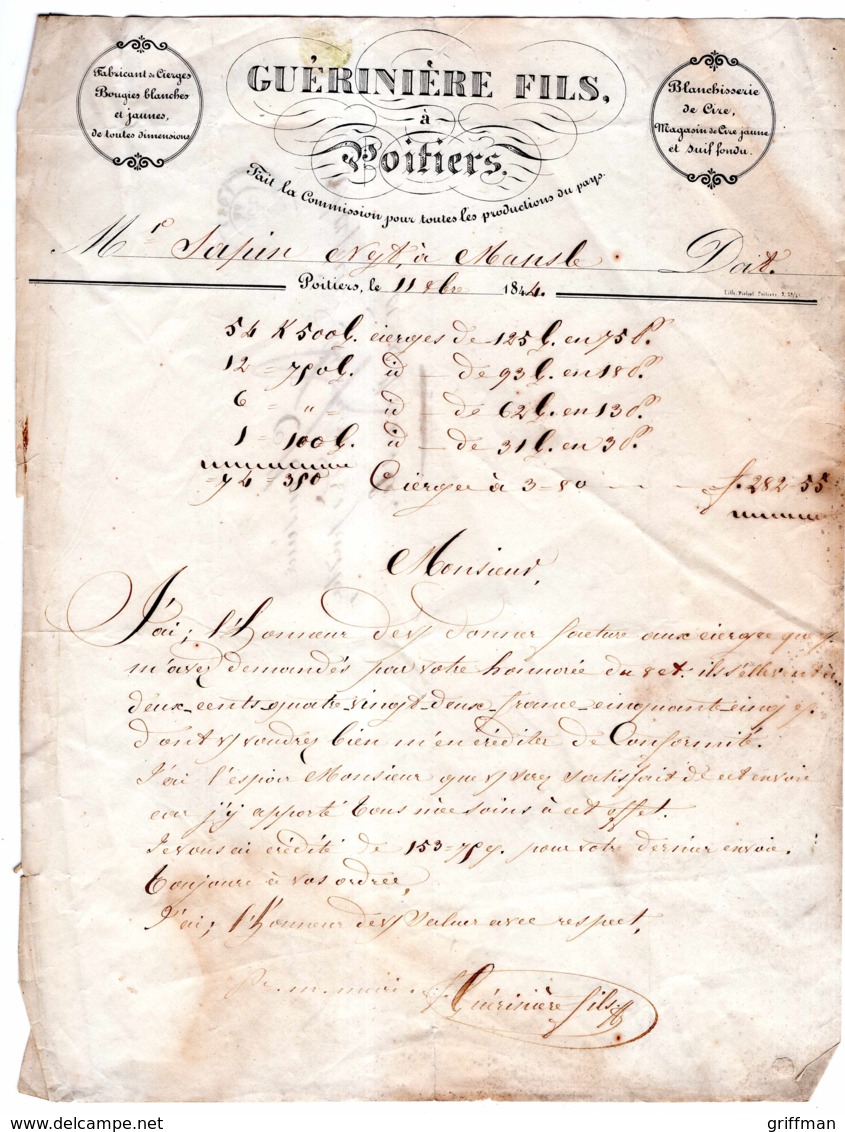 Fabricant de Cierges
Bougies blanches
et jaunes,
de toutes dimensions
GUÉRINIÈRE FILS,
à
Poitiers.
Blanchisserie
de Cire,
Magasin de Cire jaune
et suif fondu.
Fait la Commission pour toutes les productions du pays.
Mr. Sapin Ngt, à Mansle Doit.
Poitiers, le 11 8bre 1844.
54 K 500 G. cierges de 125 G. en 75 P.
12 = 750 G. id - de 93 G. en 18 P.
6 = " = id - de 62 G. en 13 P.
1 = 100 G. id - de 31 G. en 3 P.
= 74 = 350 Cierges à 3-80 - - f. 282-55
Monsieur,
J'ai; l'Honneur de v. donner facture aux cierges que v.
m'avez demandés par votre honorée du 8 et. ils s'élèvent à
deux-cents-quatre-vingt-deux-francs-cinquante-cinq
dont v. voudrez bien m'en créditer de Conformité.
J'ai l'espoir Monsieur que v. serez satisfait de cet envoi
car j'y apporté tous mes soins à cet effet.
Je vous ai crédité de 153=75 pour votre dernier envoie.
toujours à vos ordres,
J'ai; l'Honneur de v. saluer avec respect,
Pr. m. mari.
Guérinière fils
griffman